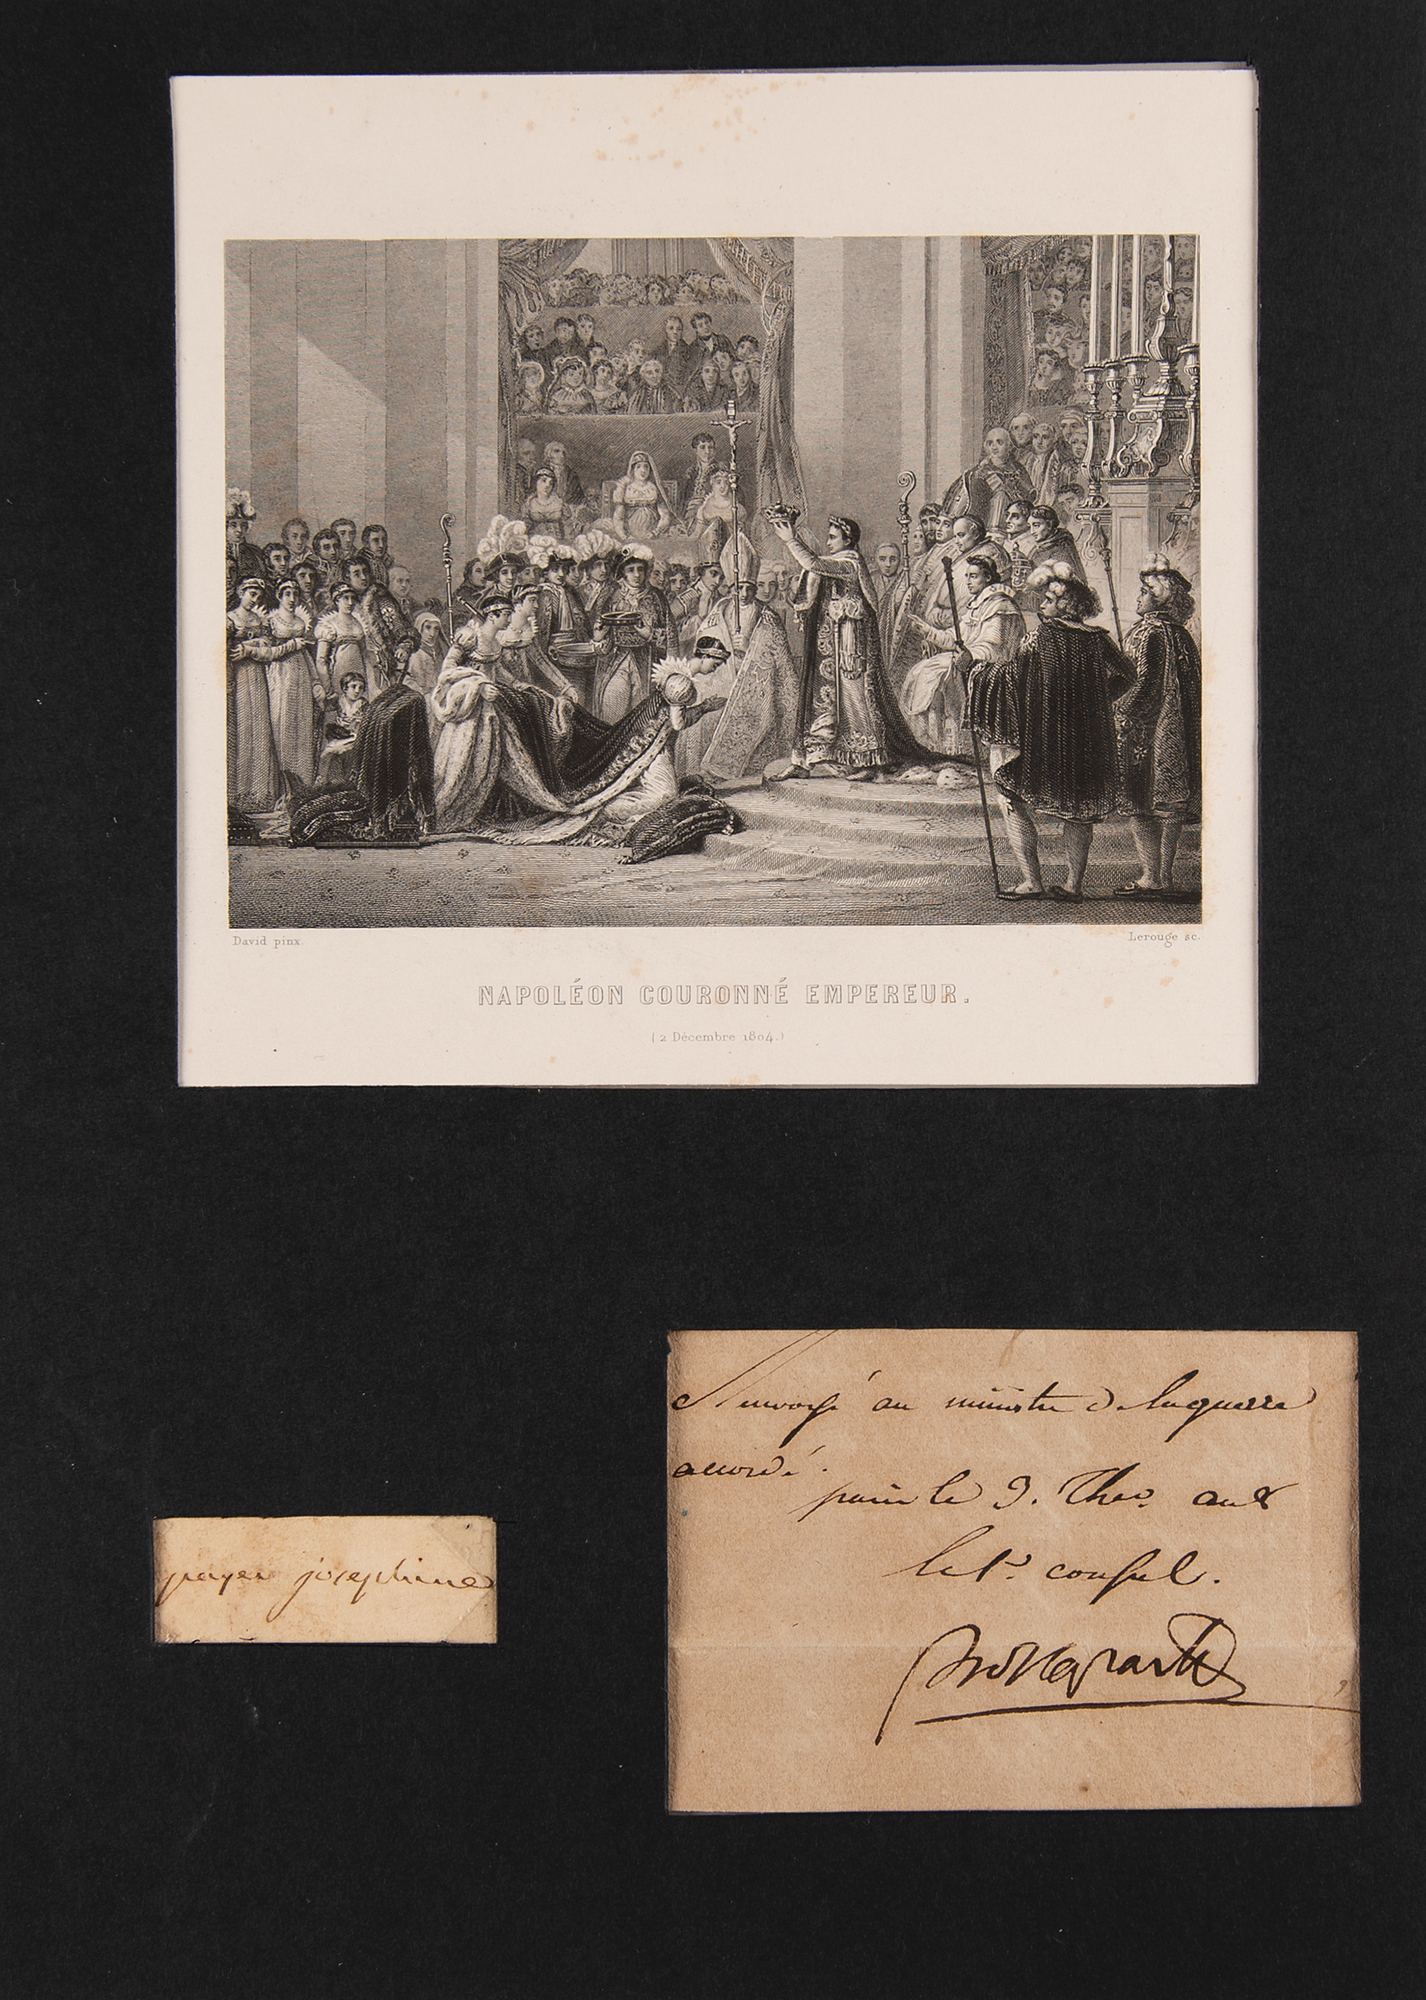 David pinx.
Lerouge sc.
NAPOLÉON COURONNÉ EMPEREUR.
(2 Décembre 1804.)
payer josephine
Renvoyé au ministre de la guerre
accordé.
pour le 9. Ther. an 8
le 1er. consul.
Bonaparte